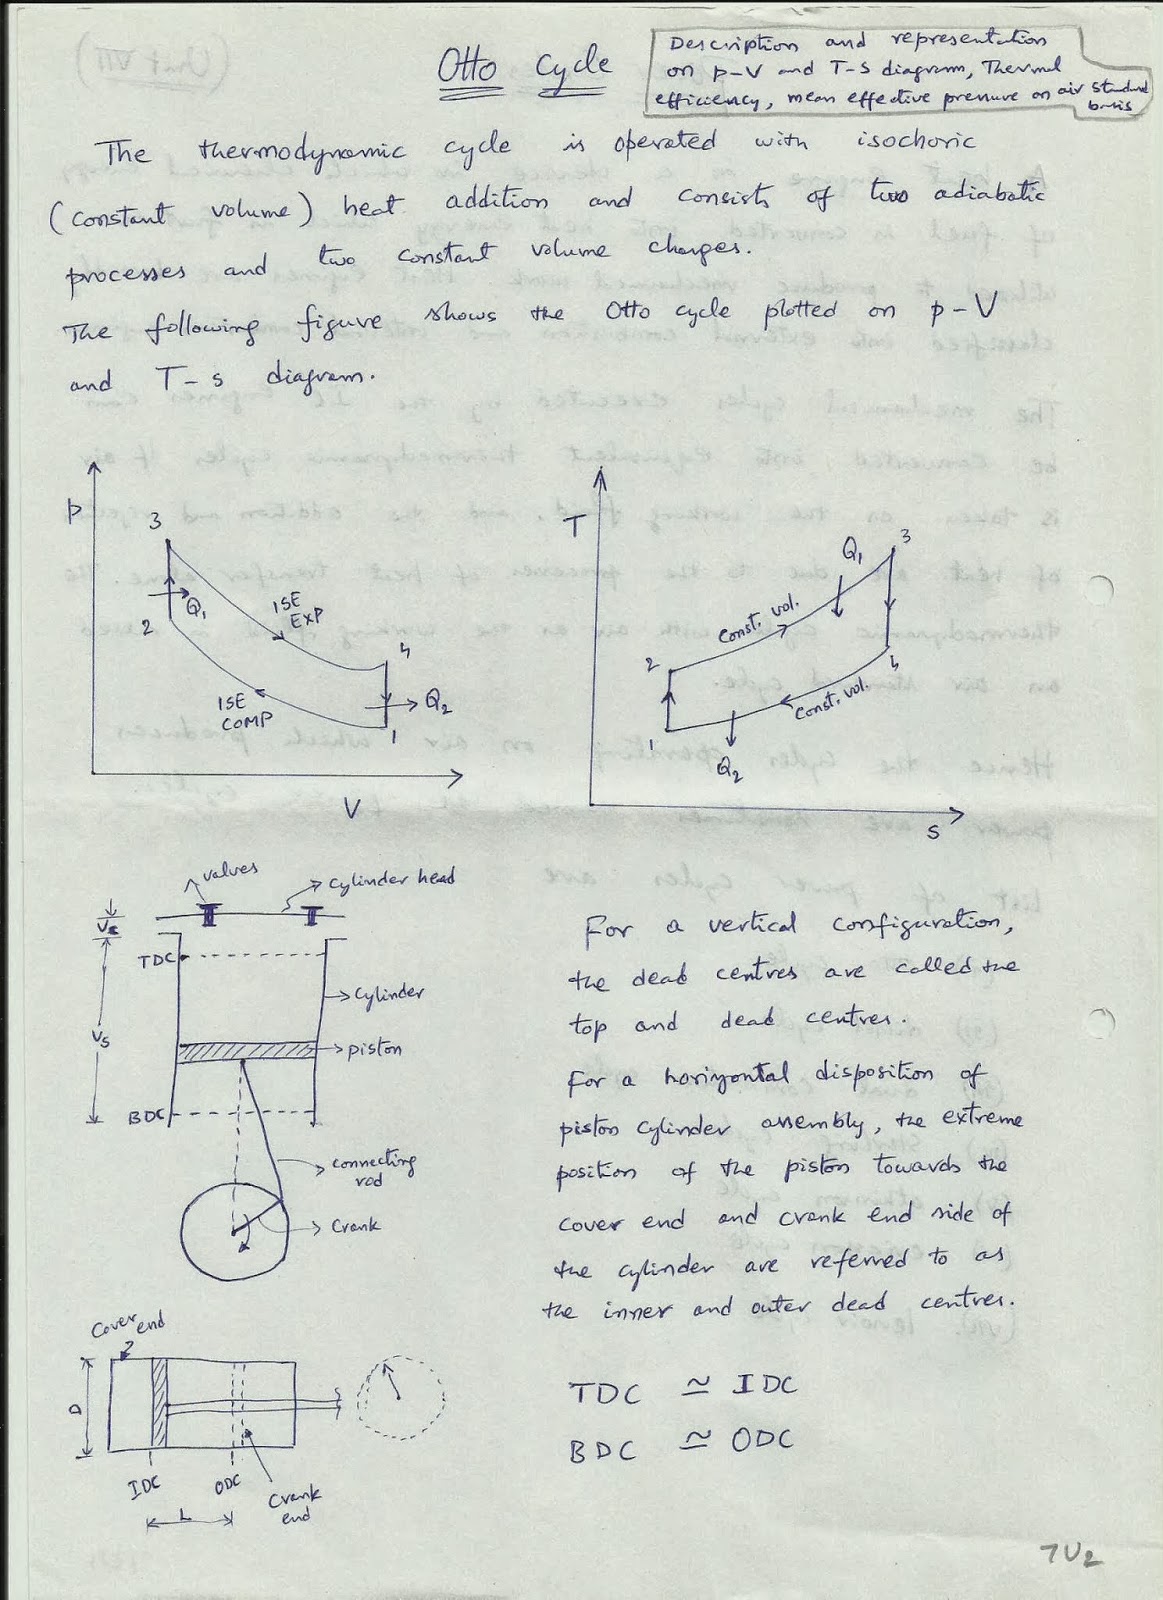 Otto Cycle
Description and representation
on p-V and T-s diagram, Thermal
efficiency, mean effective pressure on air standard
basis
The thermodynamic cycle is operated with isochoric
(constant volume) heat addition and consists of two adiabatic
processes and two constant volume changes.
The following figure shows the Otto cycle plotted on p-V
and T-s diagram.
P
3
2
Q1
ISE
EXP
4
ISE
COMP
Q2
1
V
T
3
Q1
Const. vol.
2
4
Const. vol.
1
Q2
s
valves
cylinder head
Vc
TDC
cylinder
Vs
piston
BDC
connecting
rod
Crank
For a vertical configuration,
the dead centres are called the
top and dead centres.
For a horizontal disposition of
piston cylinder assembly, the extreme
position of the piston towards the
cover end and crank end side of
the cylinder are referred to as
the inner and outer dead centres.
Cover end
D
IDC
ODC
Crank
end
L
TDC ≃ IDC
BDC ≃ ODC
7U2